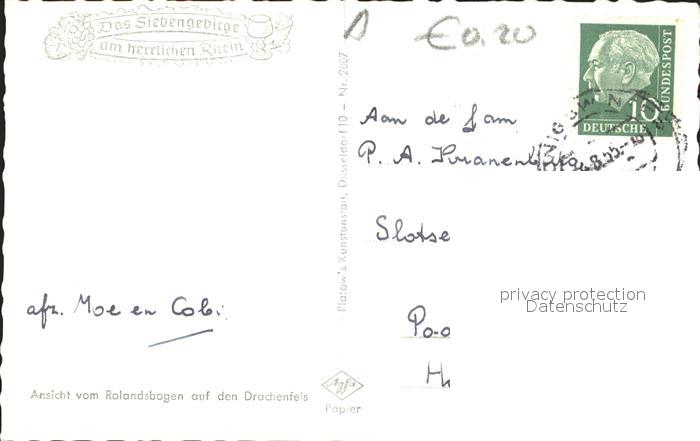 Das Siebengebirge
am herrlichen Rhein
€0.20
10
BUNDESPOST
DEUTSCHE
Aan de fam
P. A. Kranenburg
Slotse
afz. Moe en Cobi.
Poo
H
privacy protection
Datenschutz
Ansicht vom Rolandsbogen auf den Drachenfels
Agfa
Papier
Platow's Kunstanstalt, Düsseldorf 10 - Nr. 2007